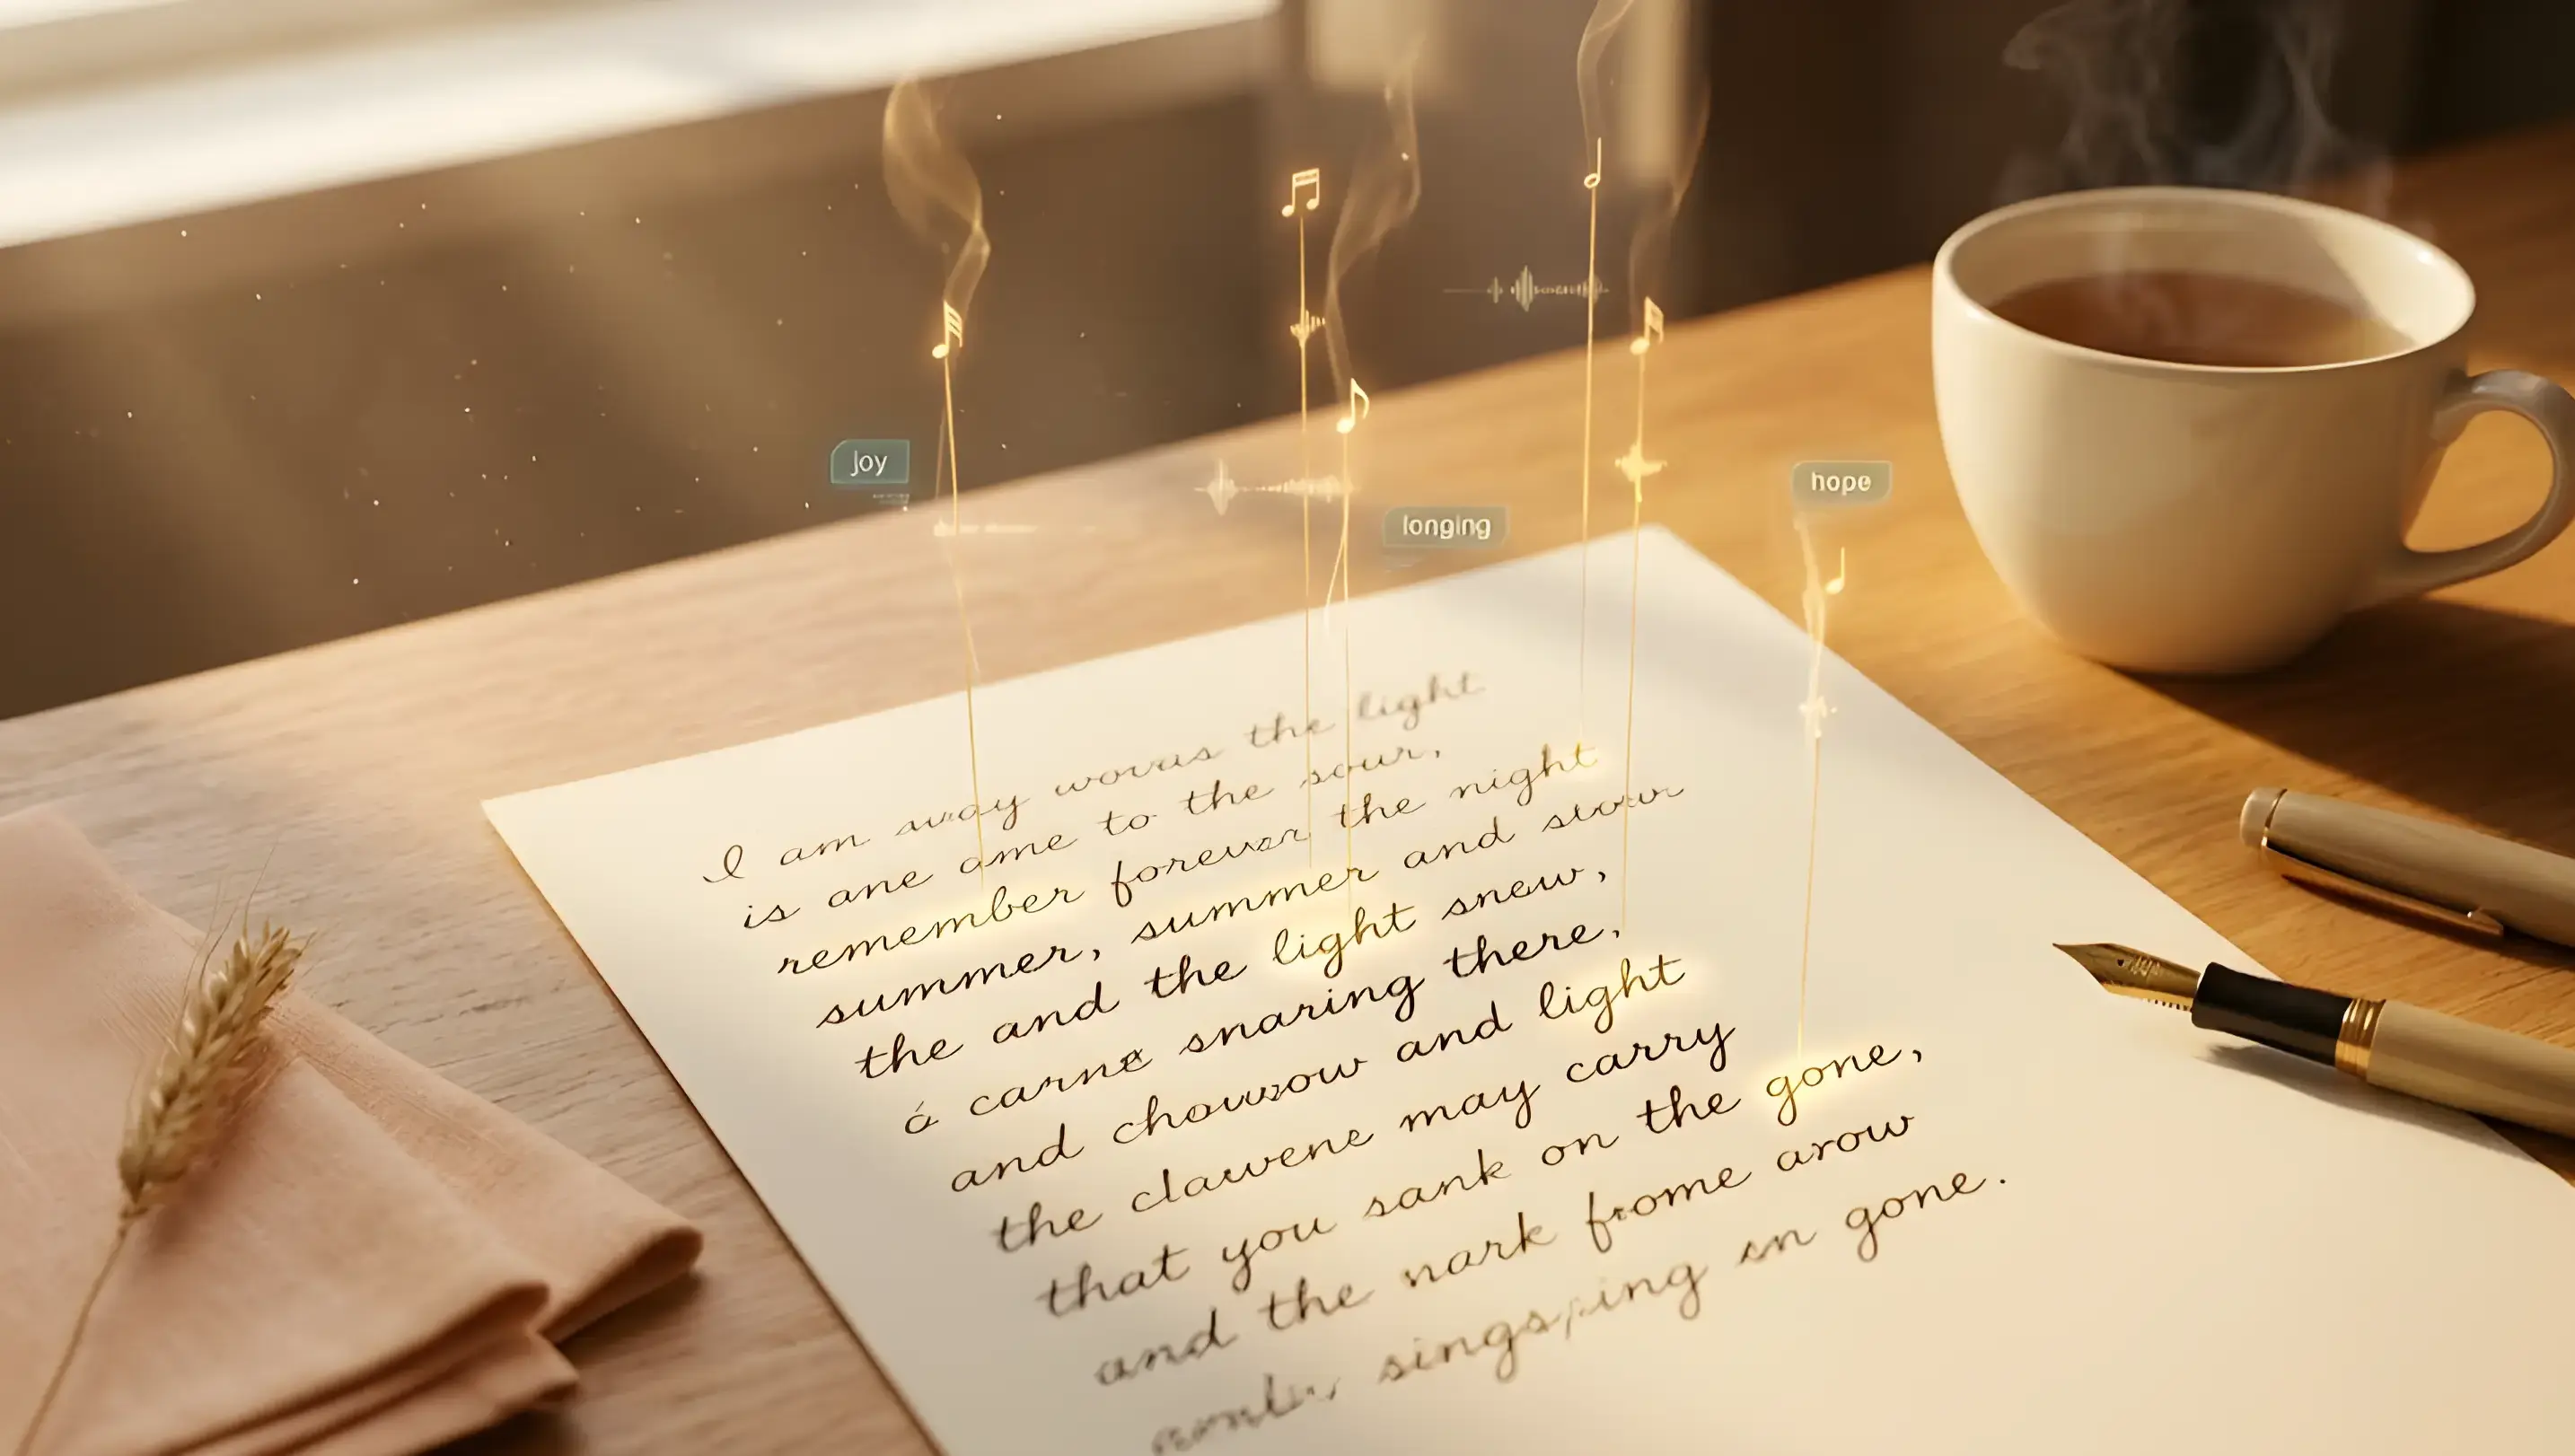 joy
hope
longing
I am away the light
is ane ame to the sour,
remember forever the night
summer, summer and
the and the light snew,
a carne snaring there,
and and light
the clawene may carry
that you sank on the gone,
and the nark frome arow
singsping in gone.